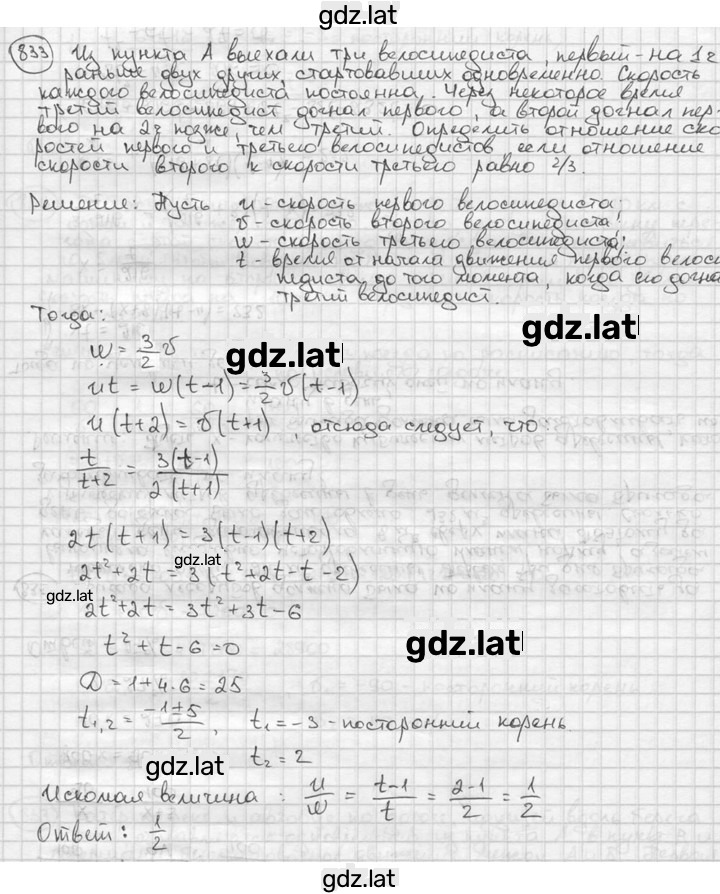 gdz.lat
833 Из пункта А выехали три велосипедиста, первый - на 1 г
раньше двух других, стартовавших одновременно. Скорость
каждого велосипедиста постоянна. Через некоторое время
третий велосипедист догнал первого, а второй догнал пер-
вого на 2г позже, чем третий. Определить отношение ско-
ростей первого и третьего велосипедистов если отношение
скорости второго к скорости третьего равно 2/3.
Решение: Пусть u - скорость первого велосипедиста;
v - скорость второго велосипедиста;
w - скорость третьего велосипедиста;
t - время от начала движения первого велоси
педиста до того момента, когда его догна
третий велосипедист.
Тогда:
gdz.lat
w = 3/2 v
gdz.lat
ut = w(t-1) = 3/2 v(t-1)
u(t+2) = v(t+1), отсюда следует, что
t/(t+2) = 3(t-1)/2(t+1)
2t(t+1) = 3(t-1)(t+2)
gdz.lat
2t²+2t = 3(t²+2t-t-2)
gdz.lat
2t²+2t = 3t²+3t-6
t²+t-6=0
gdz.lat
D=1+4·6=25
t₁,₂ = (-1±5)/2, t₁=-3 - посторонний корень
t₂=2
gdz.lat
Искомая величина: u/w = (t-1)/t = (2-1)/2 = 1/2
Ответ: 1/2
gdz.lat